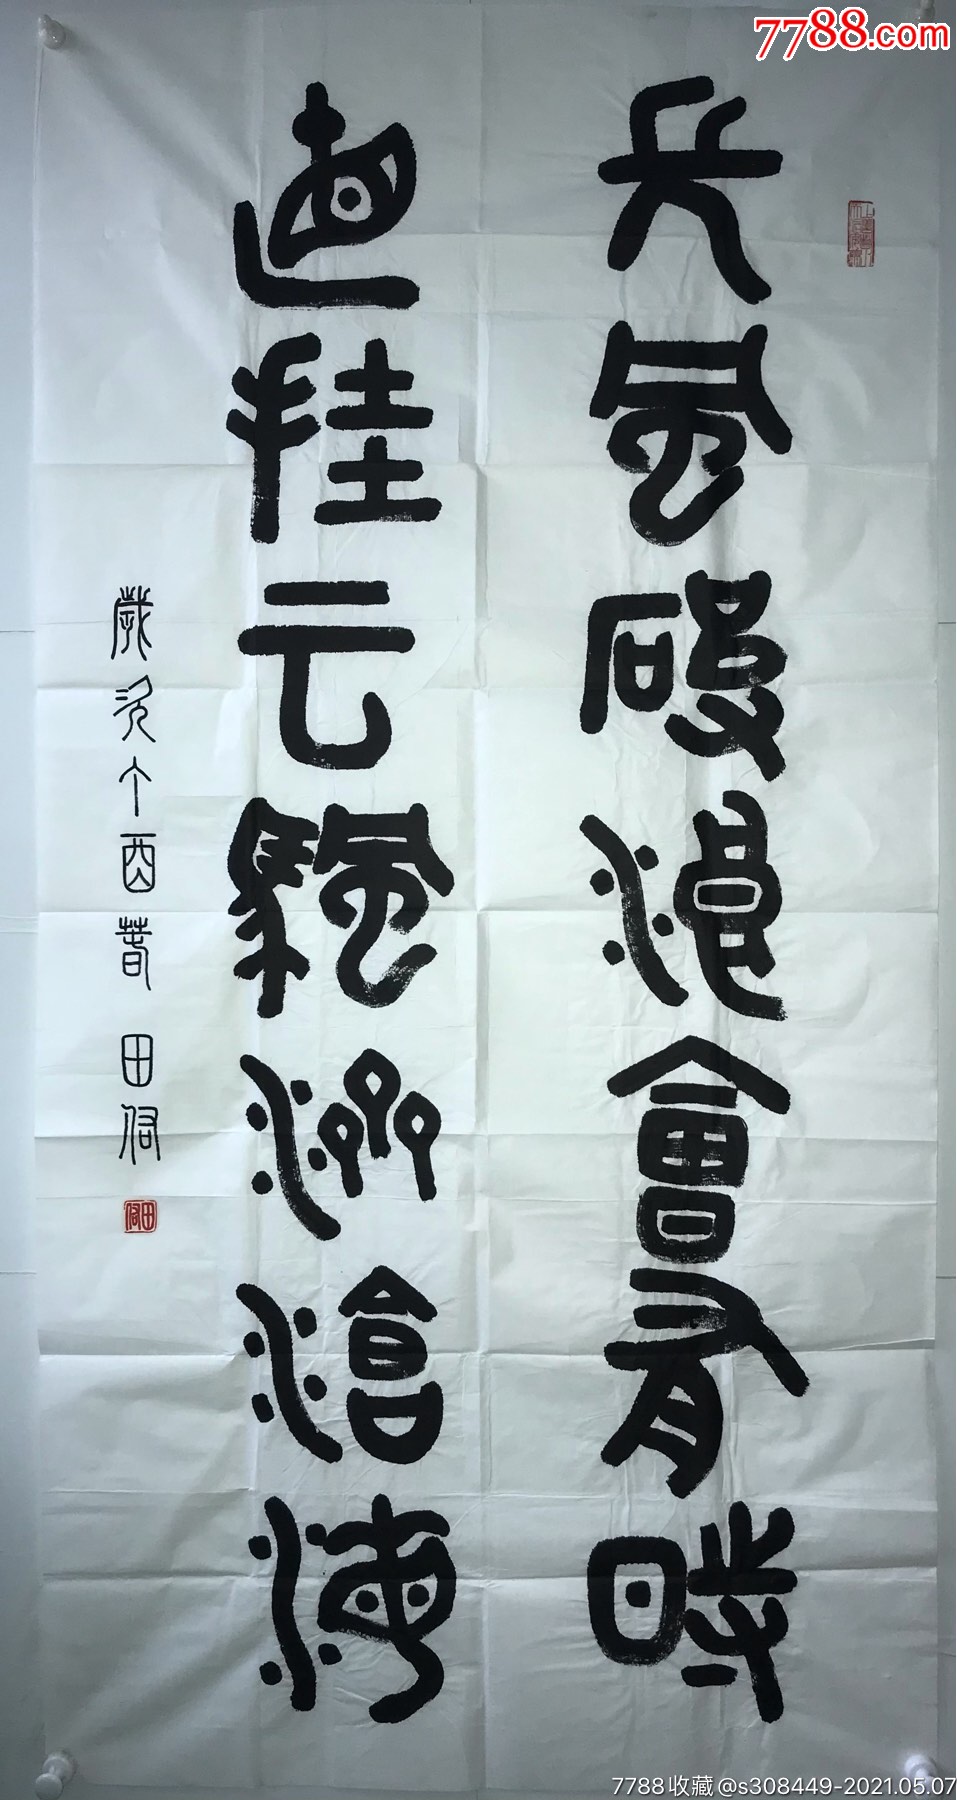 7788.com
長風破浪會有時
直挂云颿濟滄海
歲次丁酉春 田
7788收藏@s308449-2021.05.07